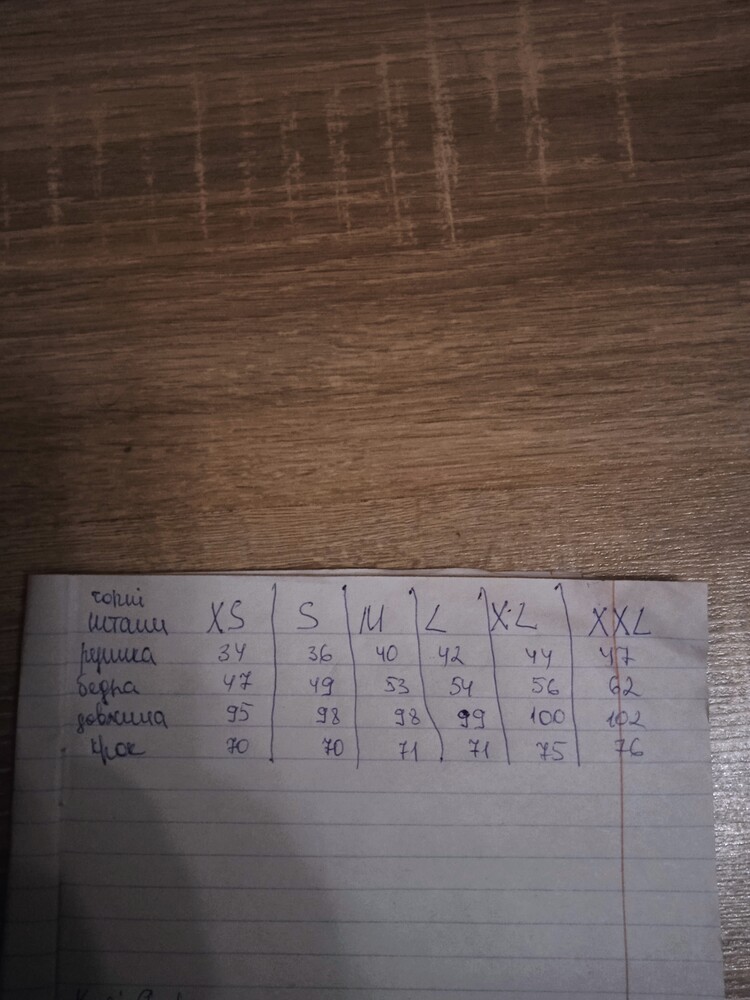 чорні
штани XS S M L XL XXL
резинка 34 36 40 42 44 47
бедра 47 49 53 54 56 62
довжина 95 98 98 99 100 102
крок 70 70 71 71 75 76